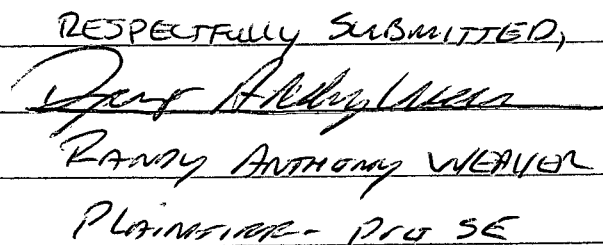 RESPECTFULLY SUBMITTED,
RANDY ANTHONY WEAVER
PLAINTIFF - PRO SE